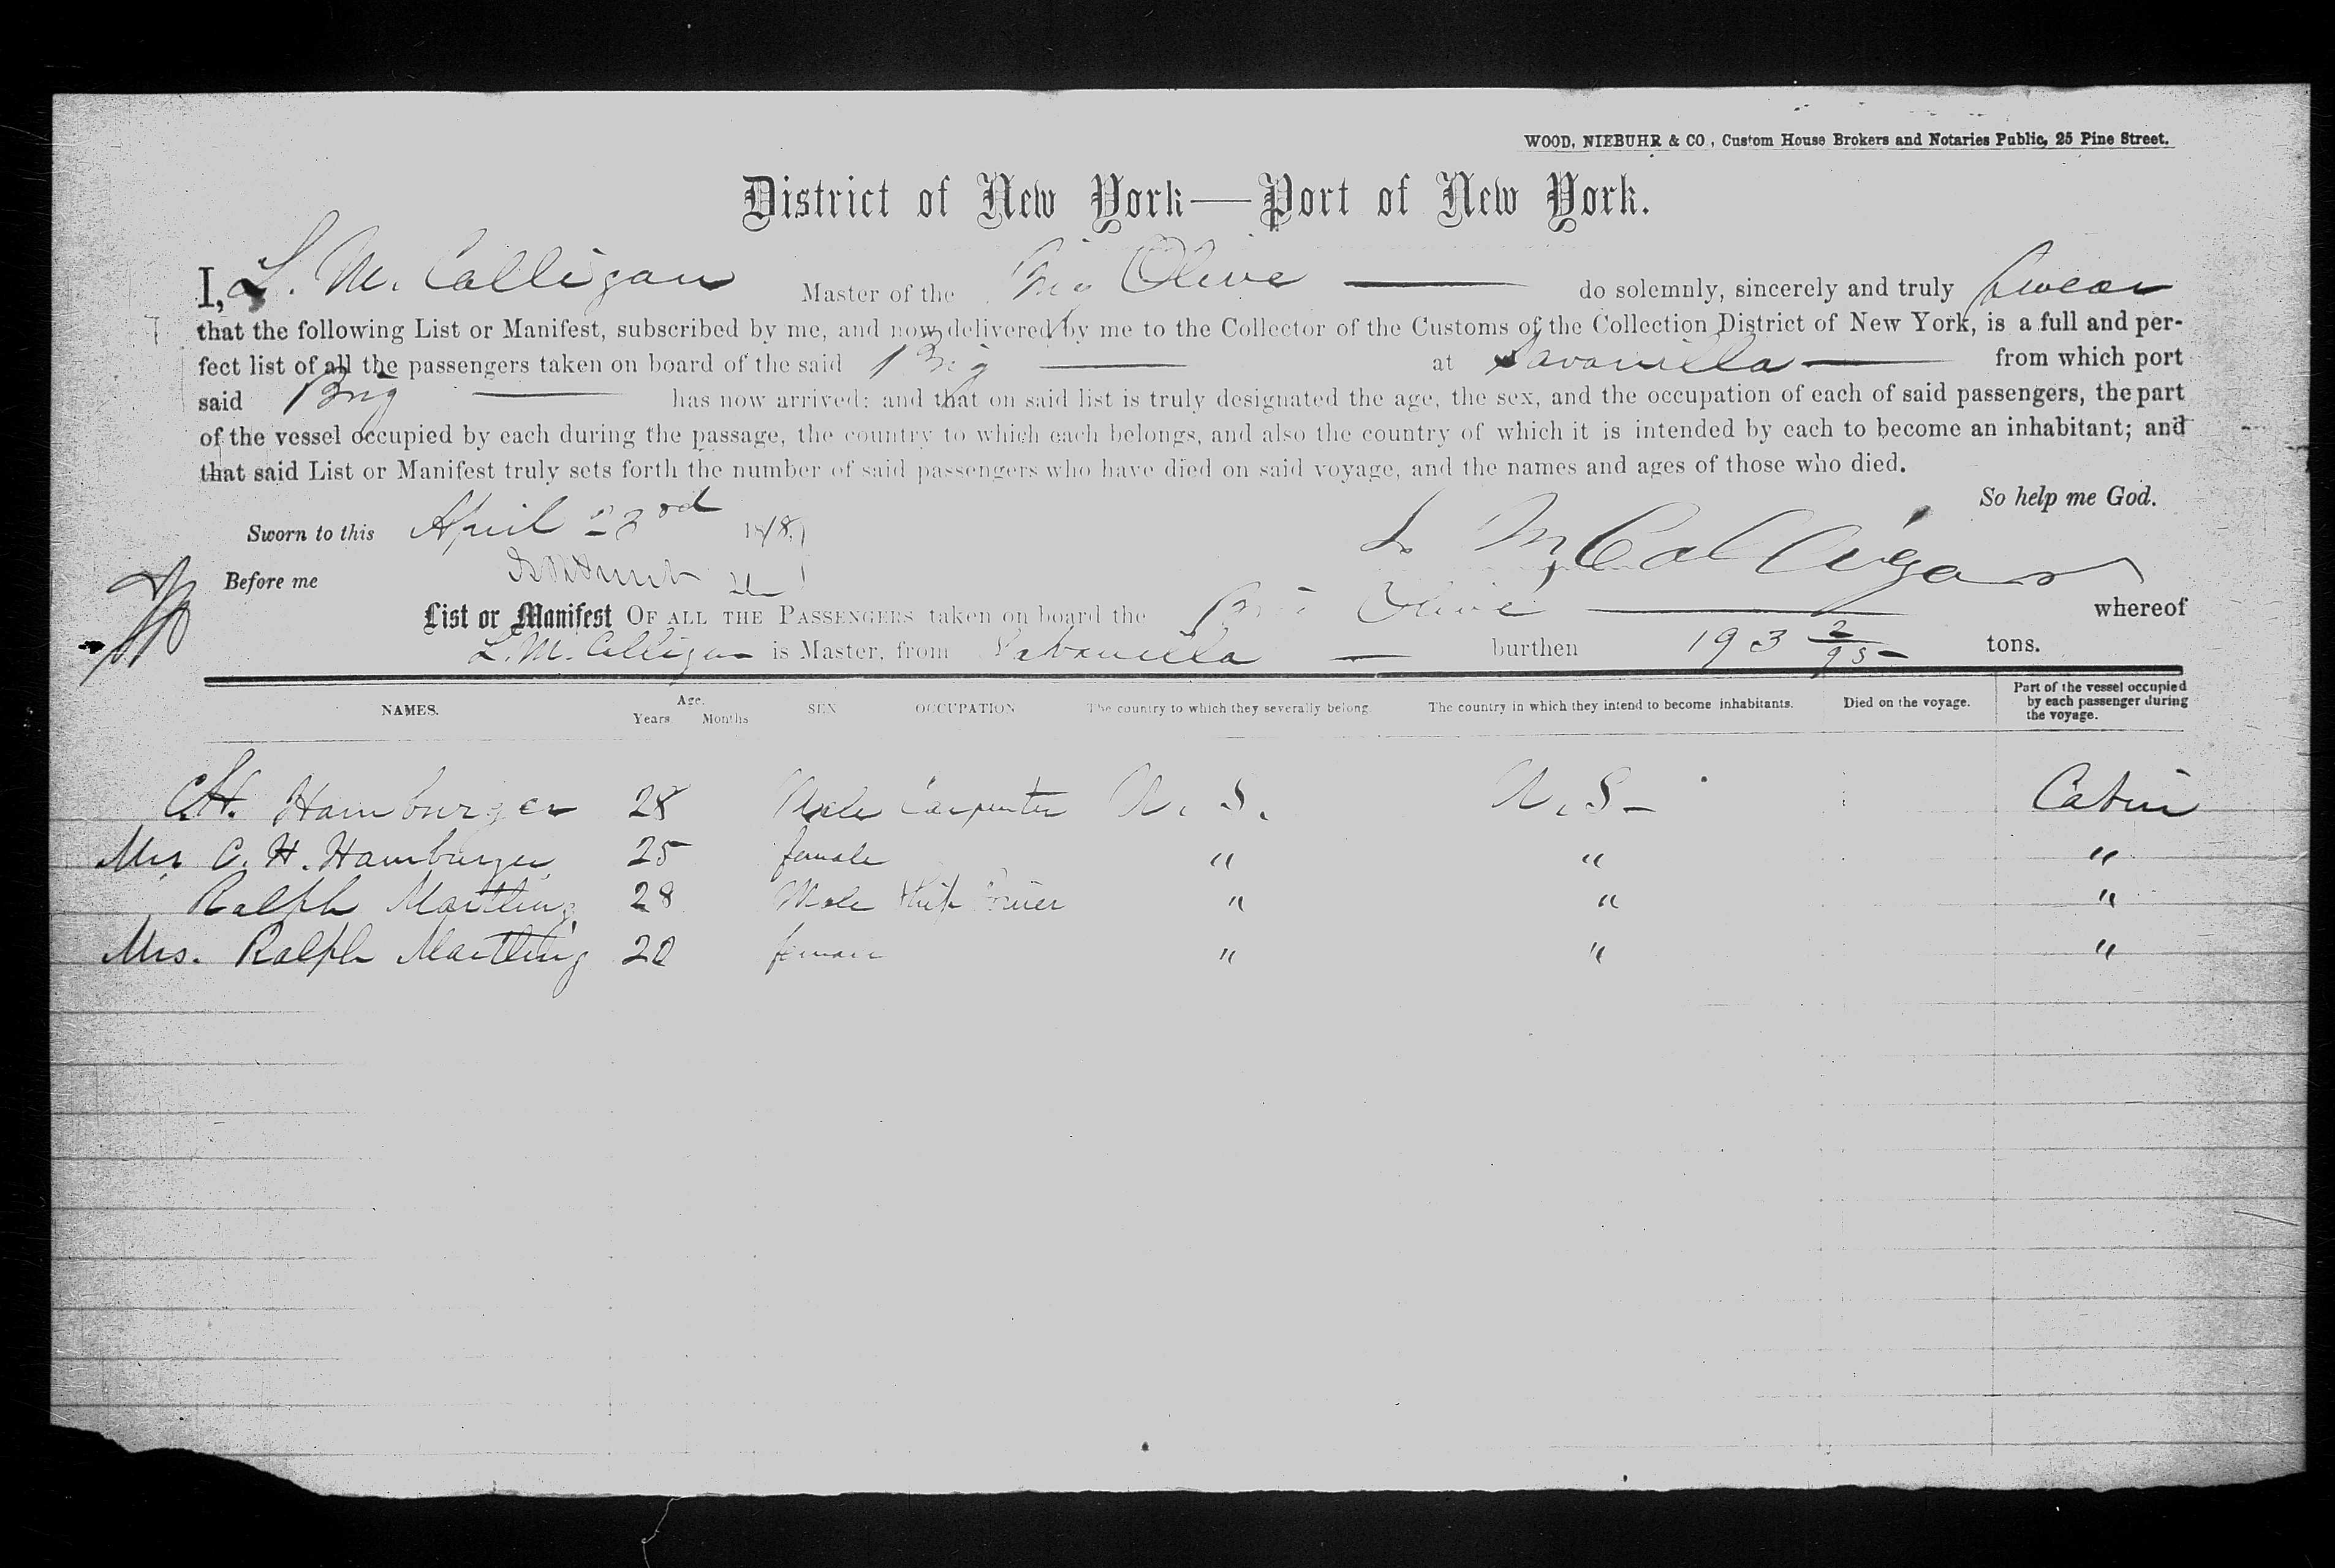 WOOD, NIEBUHR & CO., Custom House Brokers and Notaries Public, 25 Pine Street.
District of New York—Port of New York.
I, L. M. Colligan Master of the Brig Olive do solemnly, sincerely and truly swear
that the following List or Manifest, subscribed by me, and now delivered by me to the Collector of the Customs of the Collection District of New York, is a full and per-
fect list of all the passengers taken on board of the said Brig at Savanilla from which port
said Brig has now arrived: and that on said list is truly designated the age, the sex, and the occupation of each of said passengers, the part
of the vessel occupied by each during the passage, the country to which each belongs, and also the country of which it is intended by each to become an inhabitant; and
that said List or Manifest truly sets forth the number of said passengers who have died on said voyage, and the names and ages of those who died.
So help me God.
Sworn to this April 23rd 18
L. M. Colligan
Before me
List or Manifest OF ALL THE PASSENGERS taken on board the Brig Olive whereof
L. M. Colligan is Master, from Sabanilla burthen 193 2/95 tons.
NAMES. Age. Years Months SEX OCCUPATION The country to which they severally belong. The country in which they intend to become inhabitants. Died on the voyage. Part of the vessel occupied by each passenger during the voyage.
C. H. Hamburger 28 Male Carpenter U. S. U. S— Cabin
Mrs C. H. Hamburger 25 female " " "
Ralph Martling 28 Male Ship " " "
Mrs. Ralph Martling 22 female " " "